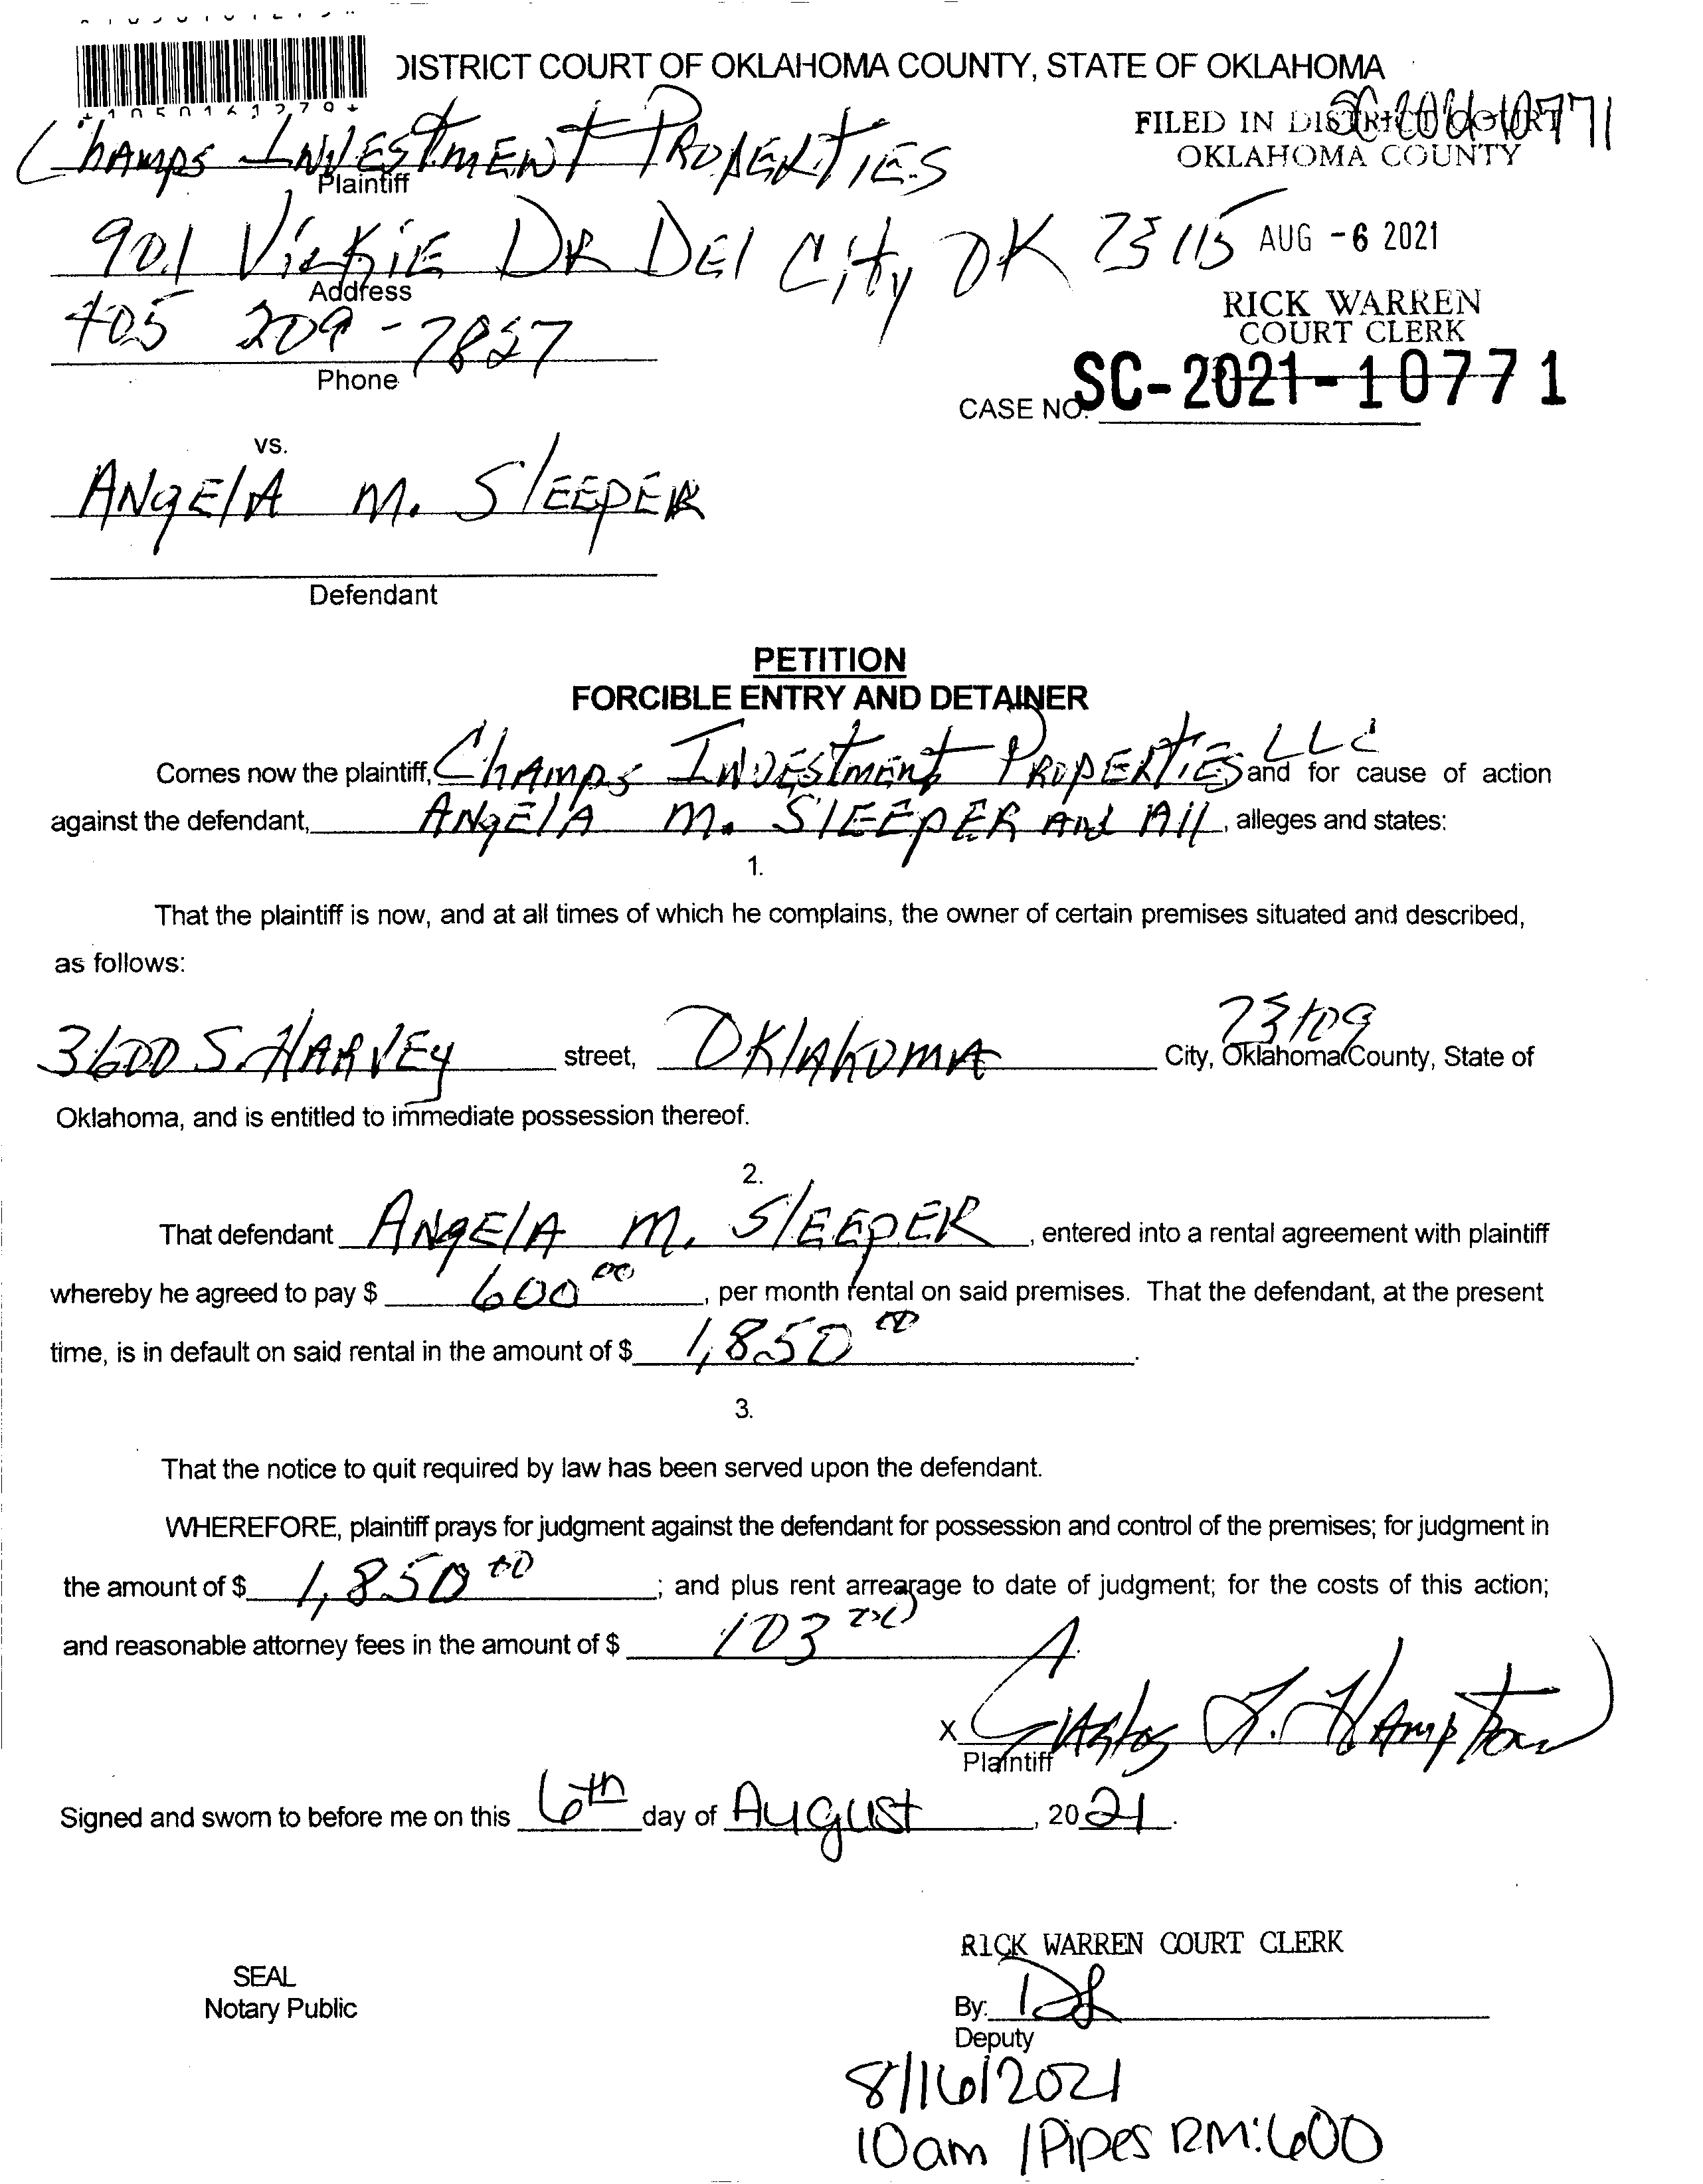 DISTRICT COURT OF OKLAHOMA COUNTY, STATE OF OKLAHOMA
*1050161279*
FILED IN DISTRICT COURT
OKLAHOMA COUNTY
Champs Investment Properties
Plaintiff
901 Vickie Dr Del City OK 73115
AUG -6 2021
Address
405 209-7857
Phone
RICK WARREN
COURT CLERK
CASE NO. SC-2021-10771
vs.
Angela M. Sleeper
Defendant
PETITION
FORCIBLE ENTRY AND DETAINER
Comes now the plaintiff, Champs Investment Properties LLC and for cause of action
against the defendant, Angela M. Sleeper and All, alleges and states:
1.
That the plaintiff is now, and at all times of which he complains, the owner of certain premises situated and described,
as follows:
3600 S. Harvey street, Oklahoma City, Oklahoma County, State of
73109
Oklahoma, and is entitled to immediate possession thereof.
2.
That defendant Angela M. Sleeper, entered into a rental agreement with plaintiff
whereby he agreed to pay $ 600 00, per month rental on said premises. That the defendant, at the present
time, is in default on said rental in the amount of $ 1,850 00.
3.
That the notice to quit required by law has been served upon the defendant.
WHEREFORE, plaintiff prays for judgment against the defendant for possession and control of the premises; for judgment in
the amount of $ 1,850 00; and plus rent arrearage to date of judgment; for the costs of this action;
and reasonable attorney fees in the amount of $ 103 00
X L. Hampton
Plaintiff
Signed and sworn to before me on this 6th day of August, 2021.
RICK WARREN COURT CLERK
SEAL
Notary Public
By:
Deputy
8/16/2021
10am / Pipes RM:600